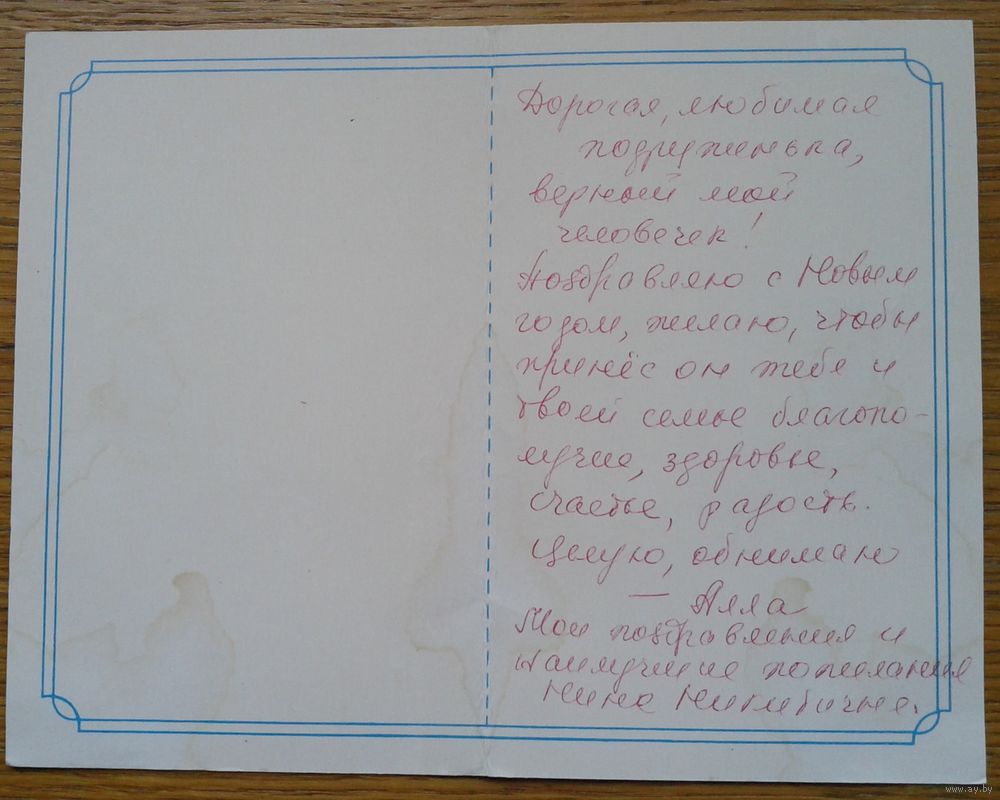 Дорогая, любимая
подруженька,
верный мой
человечек!
Поздравляю с Новым
годом, желаю, чтобы
принёс он тебе и
твоей семье благопо-
лучие, здоровье,
счастье, радость.
Целую, обнимаю
— Алла
Мои поздравления и
наилучшие пожелания
Нине
www.ay.by